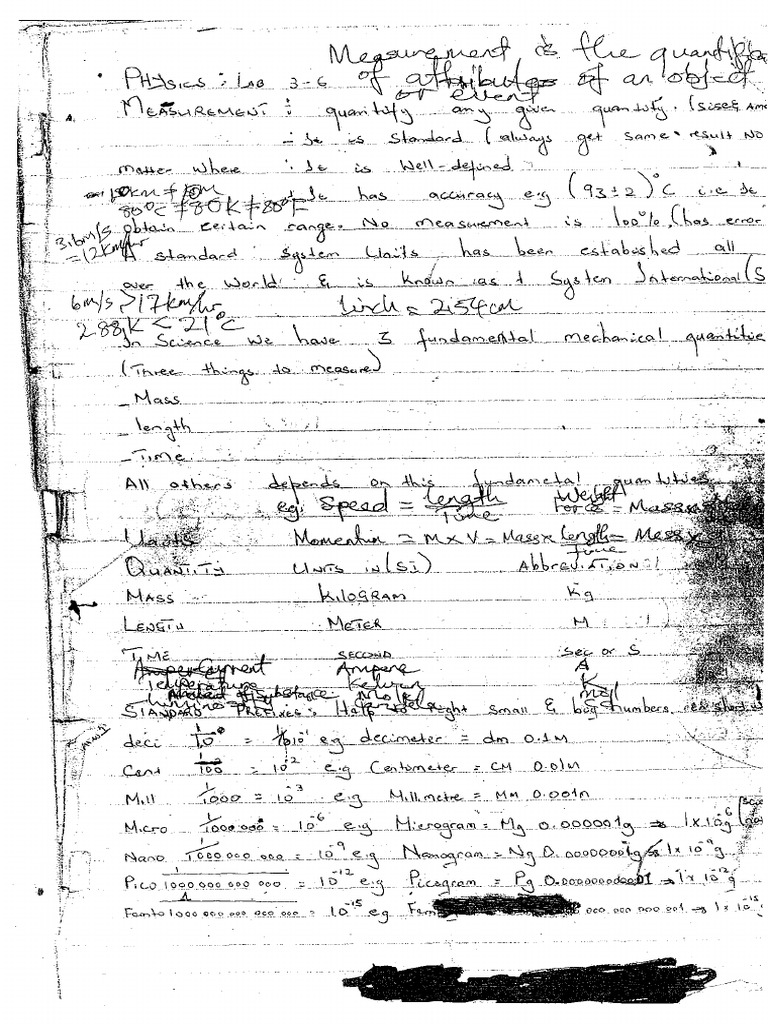 Measurement is the quantific
PHYSICS : LAB 3-6 of attributes of an object
or event
MEASUREMENT : quantify any given quantity. (sise &
- It is standard (always get same result No
matter where : It is Well-defined
10km ≠ 10M
It has accuracy e.g (93±2)°C i.e It
80°C ≠ 80K ≠ 80°F
obtain certain range. No measurement is 100%. (has error
3.6m/s
= 12km/hr
A standard System Units has been estabished all
over the World & is known as System International (S
6m/s > 17km/hr 1inch = 2.54cm
288K < 21°C
In Science we have 3 fundamental mechanical quantitie
(Three things to measure)
- Mass
- length
- Time
All others depends on this fundametal quantities
eg. Speed = Length/Time Weight
Force = Mass x
Units Momentum = M x V = Mass x Length/Time = Mass x
QUANTITY UNITS IN (SI) ABBREVIATION
MASS KILOGRAM Kg
LENGTH METER M
TIME SECOND Sec or S
Current Ampere A
Temperature Kelvin K
Amount of Substance Mole mol
STANDARD PREFIXES : Help to right small & big numbers
deci 1/10 = 10-1 e.g decimeter = dm 0.1M
Cent 1/100 = 10-2 e.g Centometer = CM 0.01M
Mill 1/1000 = 10-3 e.g Millmetre = MM 0.001m
Micro 1/1000 000 = 10-6 e.g Microgram = Mg 0.000001g → 1x10-6g
Nano 1/1000 000 000 = 10-9 e.g Nanogram = Ng 0.000000001g → 1x10-9g
Pico 1/1000 000 000 000 = 10-12 e.g Picogram = Pg 0.000000000001 → 1x10-12g
Femto 1/1000 000 000 000 000 = 10-15 eg Fem 000 000 000 001 → 1x10-15